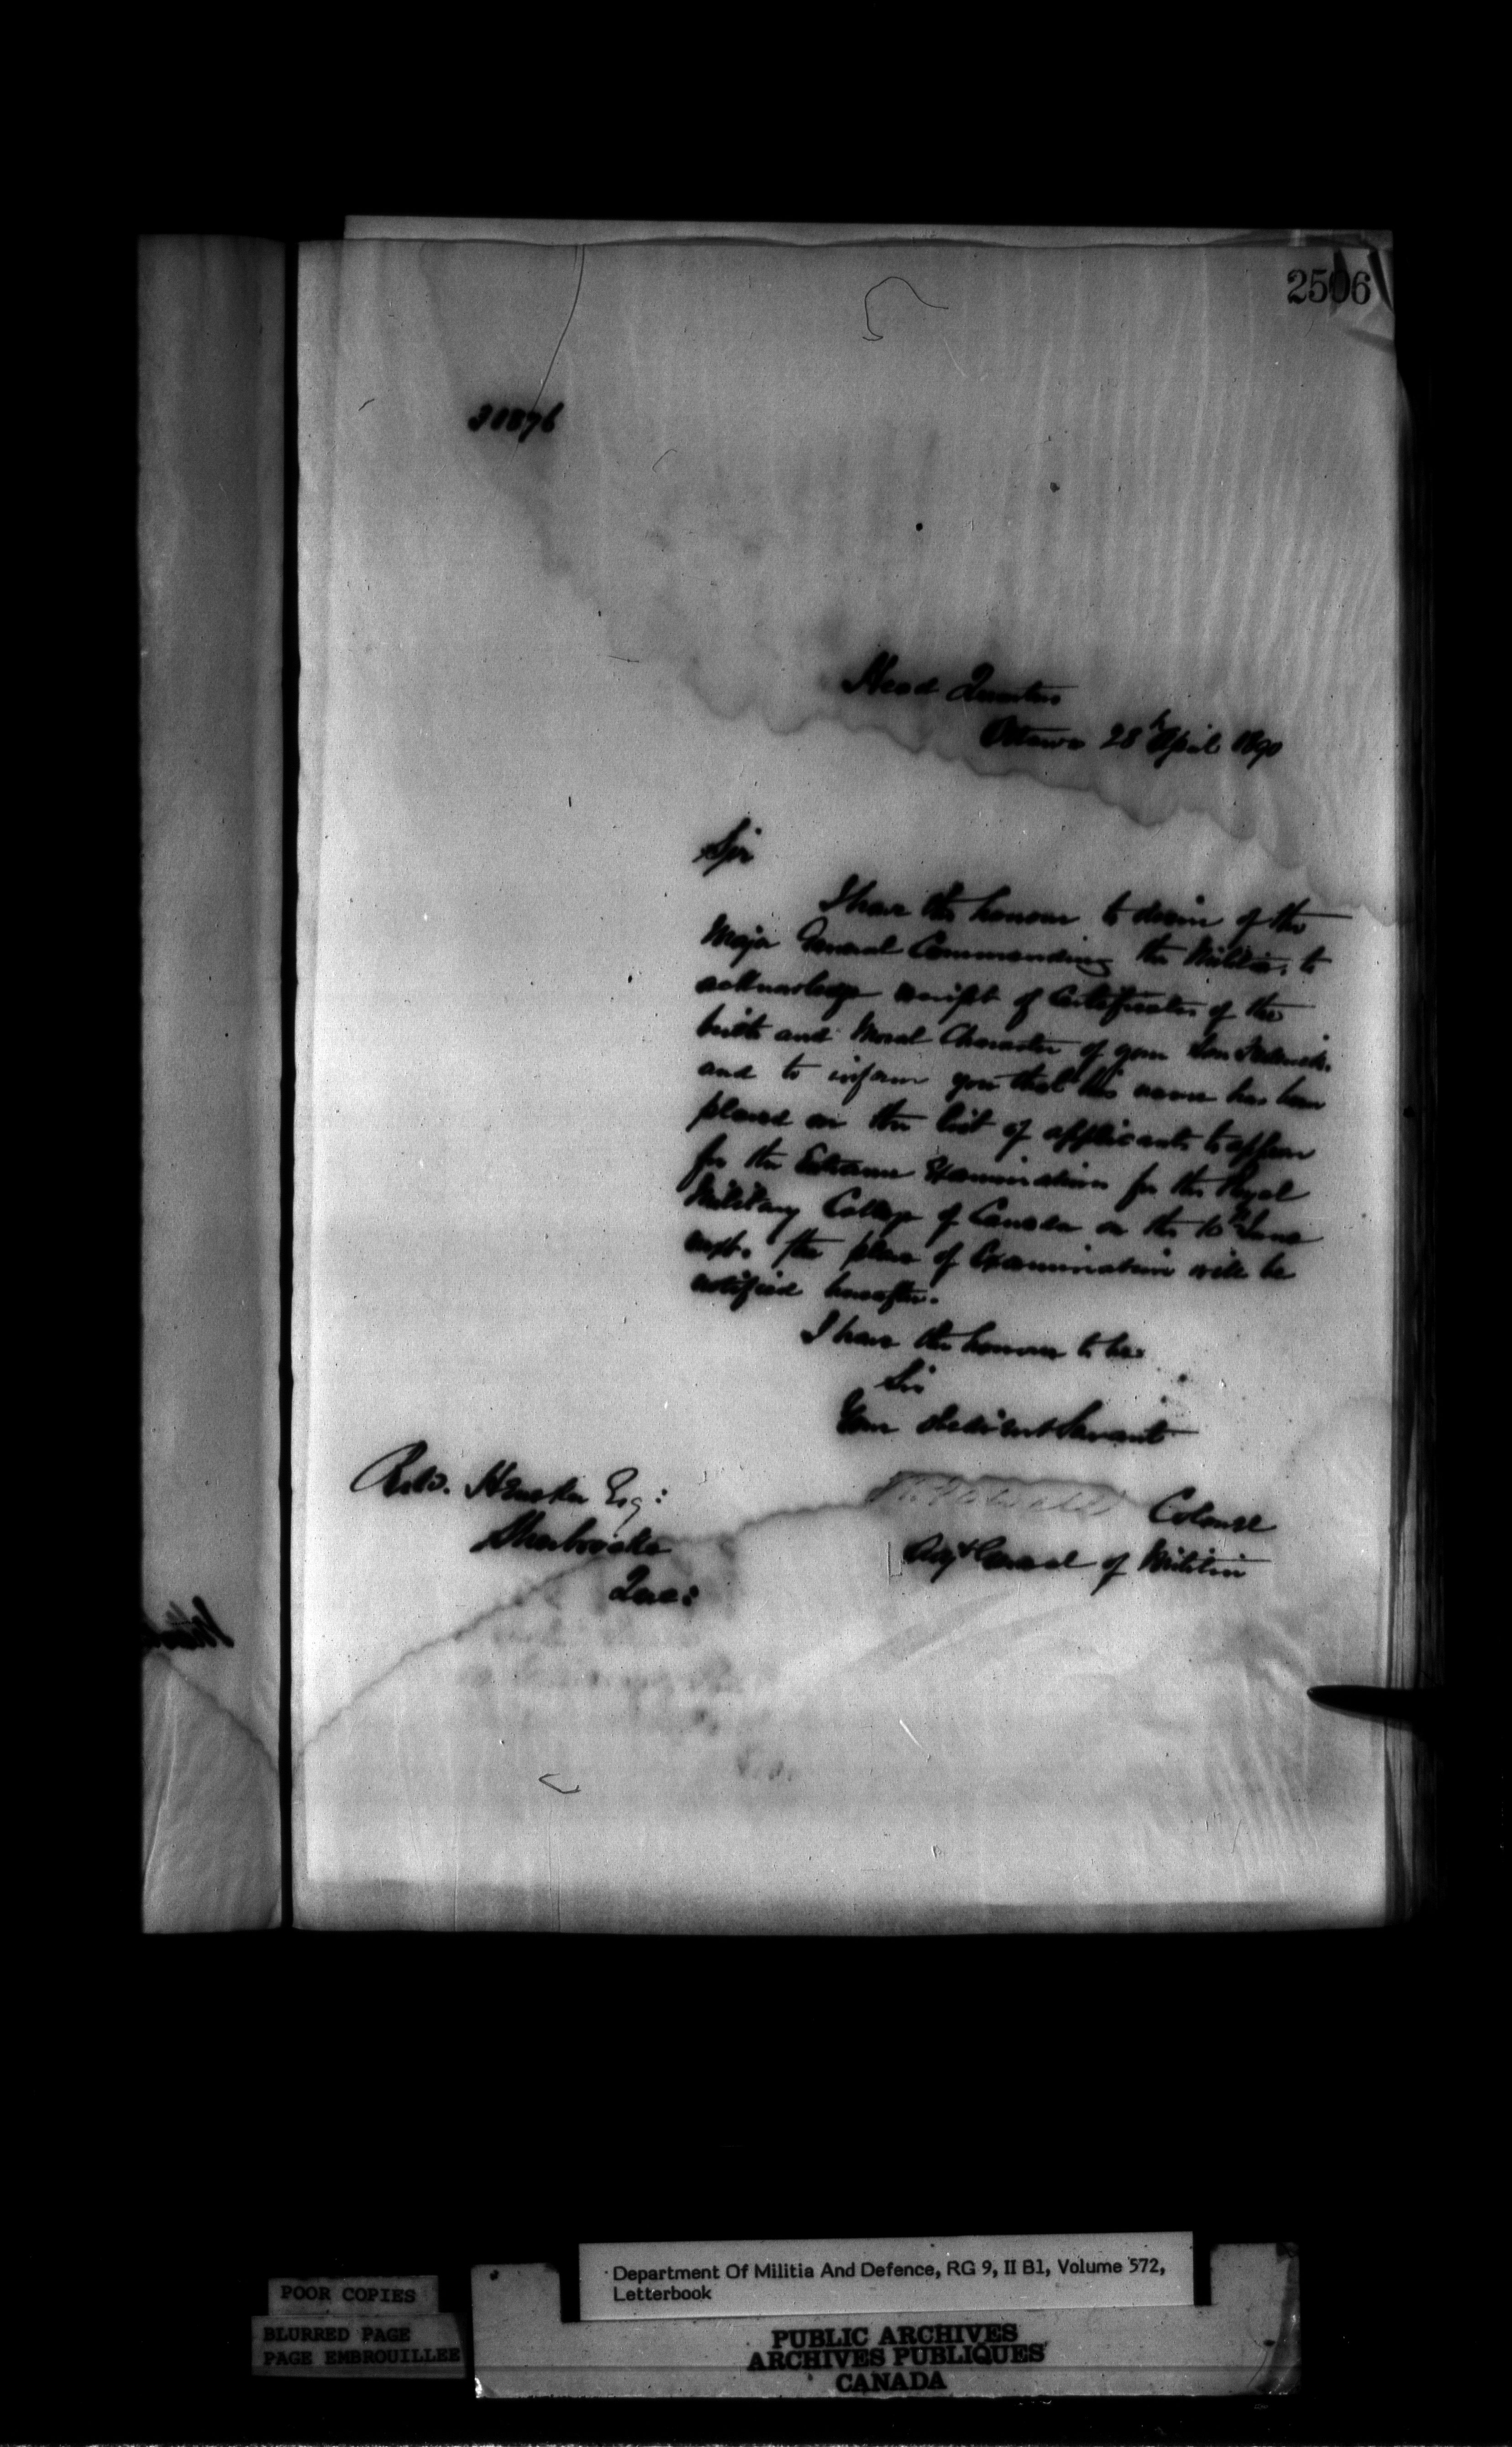 2506
31876
Head Quarters
Ottawa 28th April 1890
Sir
I have the honour to desire of the
Major General Commanding the Militia, to
acknowledge receipt of Certificates of the
birth and Moral Character of your Son Frederick,
and to inform you that his name has been
placed on the list of applicants to appear
for the Entrance Examination for the Royal
Military College of Canada on the 10th June
next. The place of Examination will be
notified hereafter.
I have the honour to be
Sir
Your obedient Servant
Powell Colonel
Adjt General of Militia
Robt. Esq:
Sherbrooke
Que:
POOR COPIES
BLURRED PAGE
PAGE EMBROUILLEE
Department Of Militia And Defence, RG 9, II B1, Volume 572,
Letterbook
PUBLIC ARCHIVES
ARCHIVES PUBLIQUES
CANADA